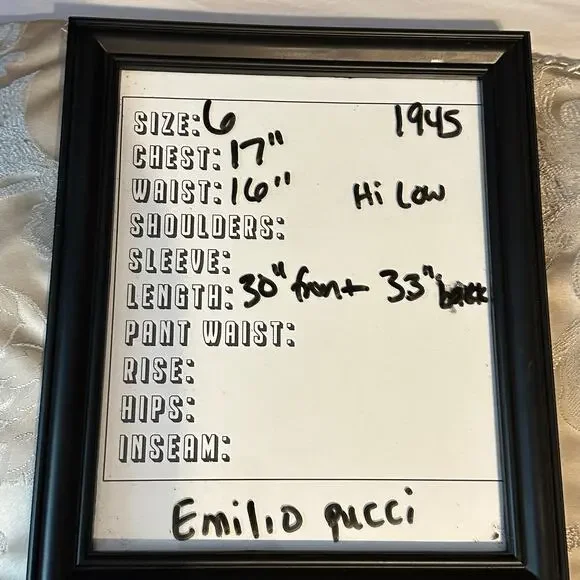 SIZE: 6 1945
CHEST: 17"
WAIST: 16" Hi Low
SHOULDERS:
SLEEVE:
LENGTH: 30" front 33" back
PANT WAIST:
RISE:
HIPS:
INSEAM:
Emilio pucci